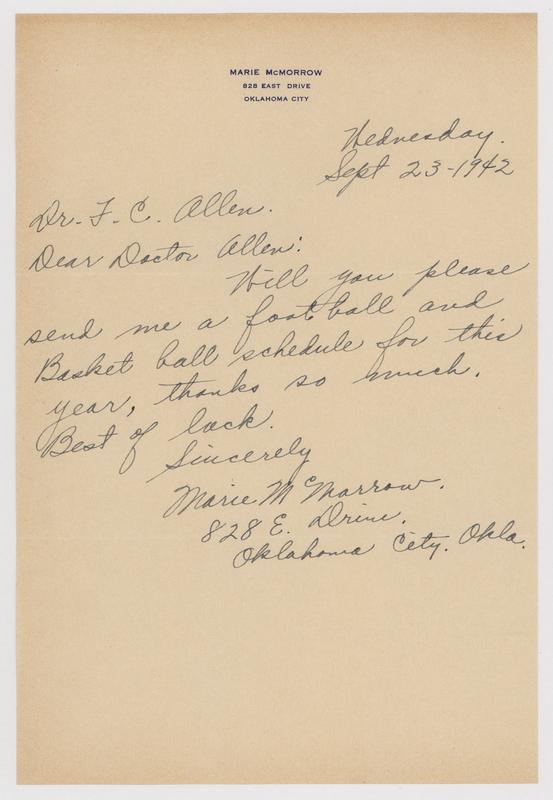 MARIE McMORROW
828 EAST DRIVE
OKLAHOMA CITY
Wednesday.
Sept 23-1942
Dr. F. C. Allen.
Dear Doctor Allen:
Will you please
send me a foot ball and
Basket ball schedule for this
year, thanks so much.
Best of luck.
Sincerely
Marie McMorrow.
828 E. Drive.
Oklahoma City. Okla.